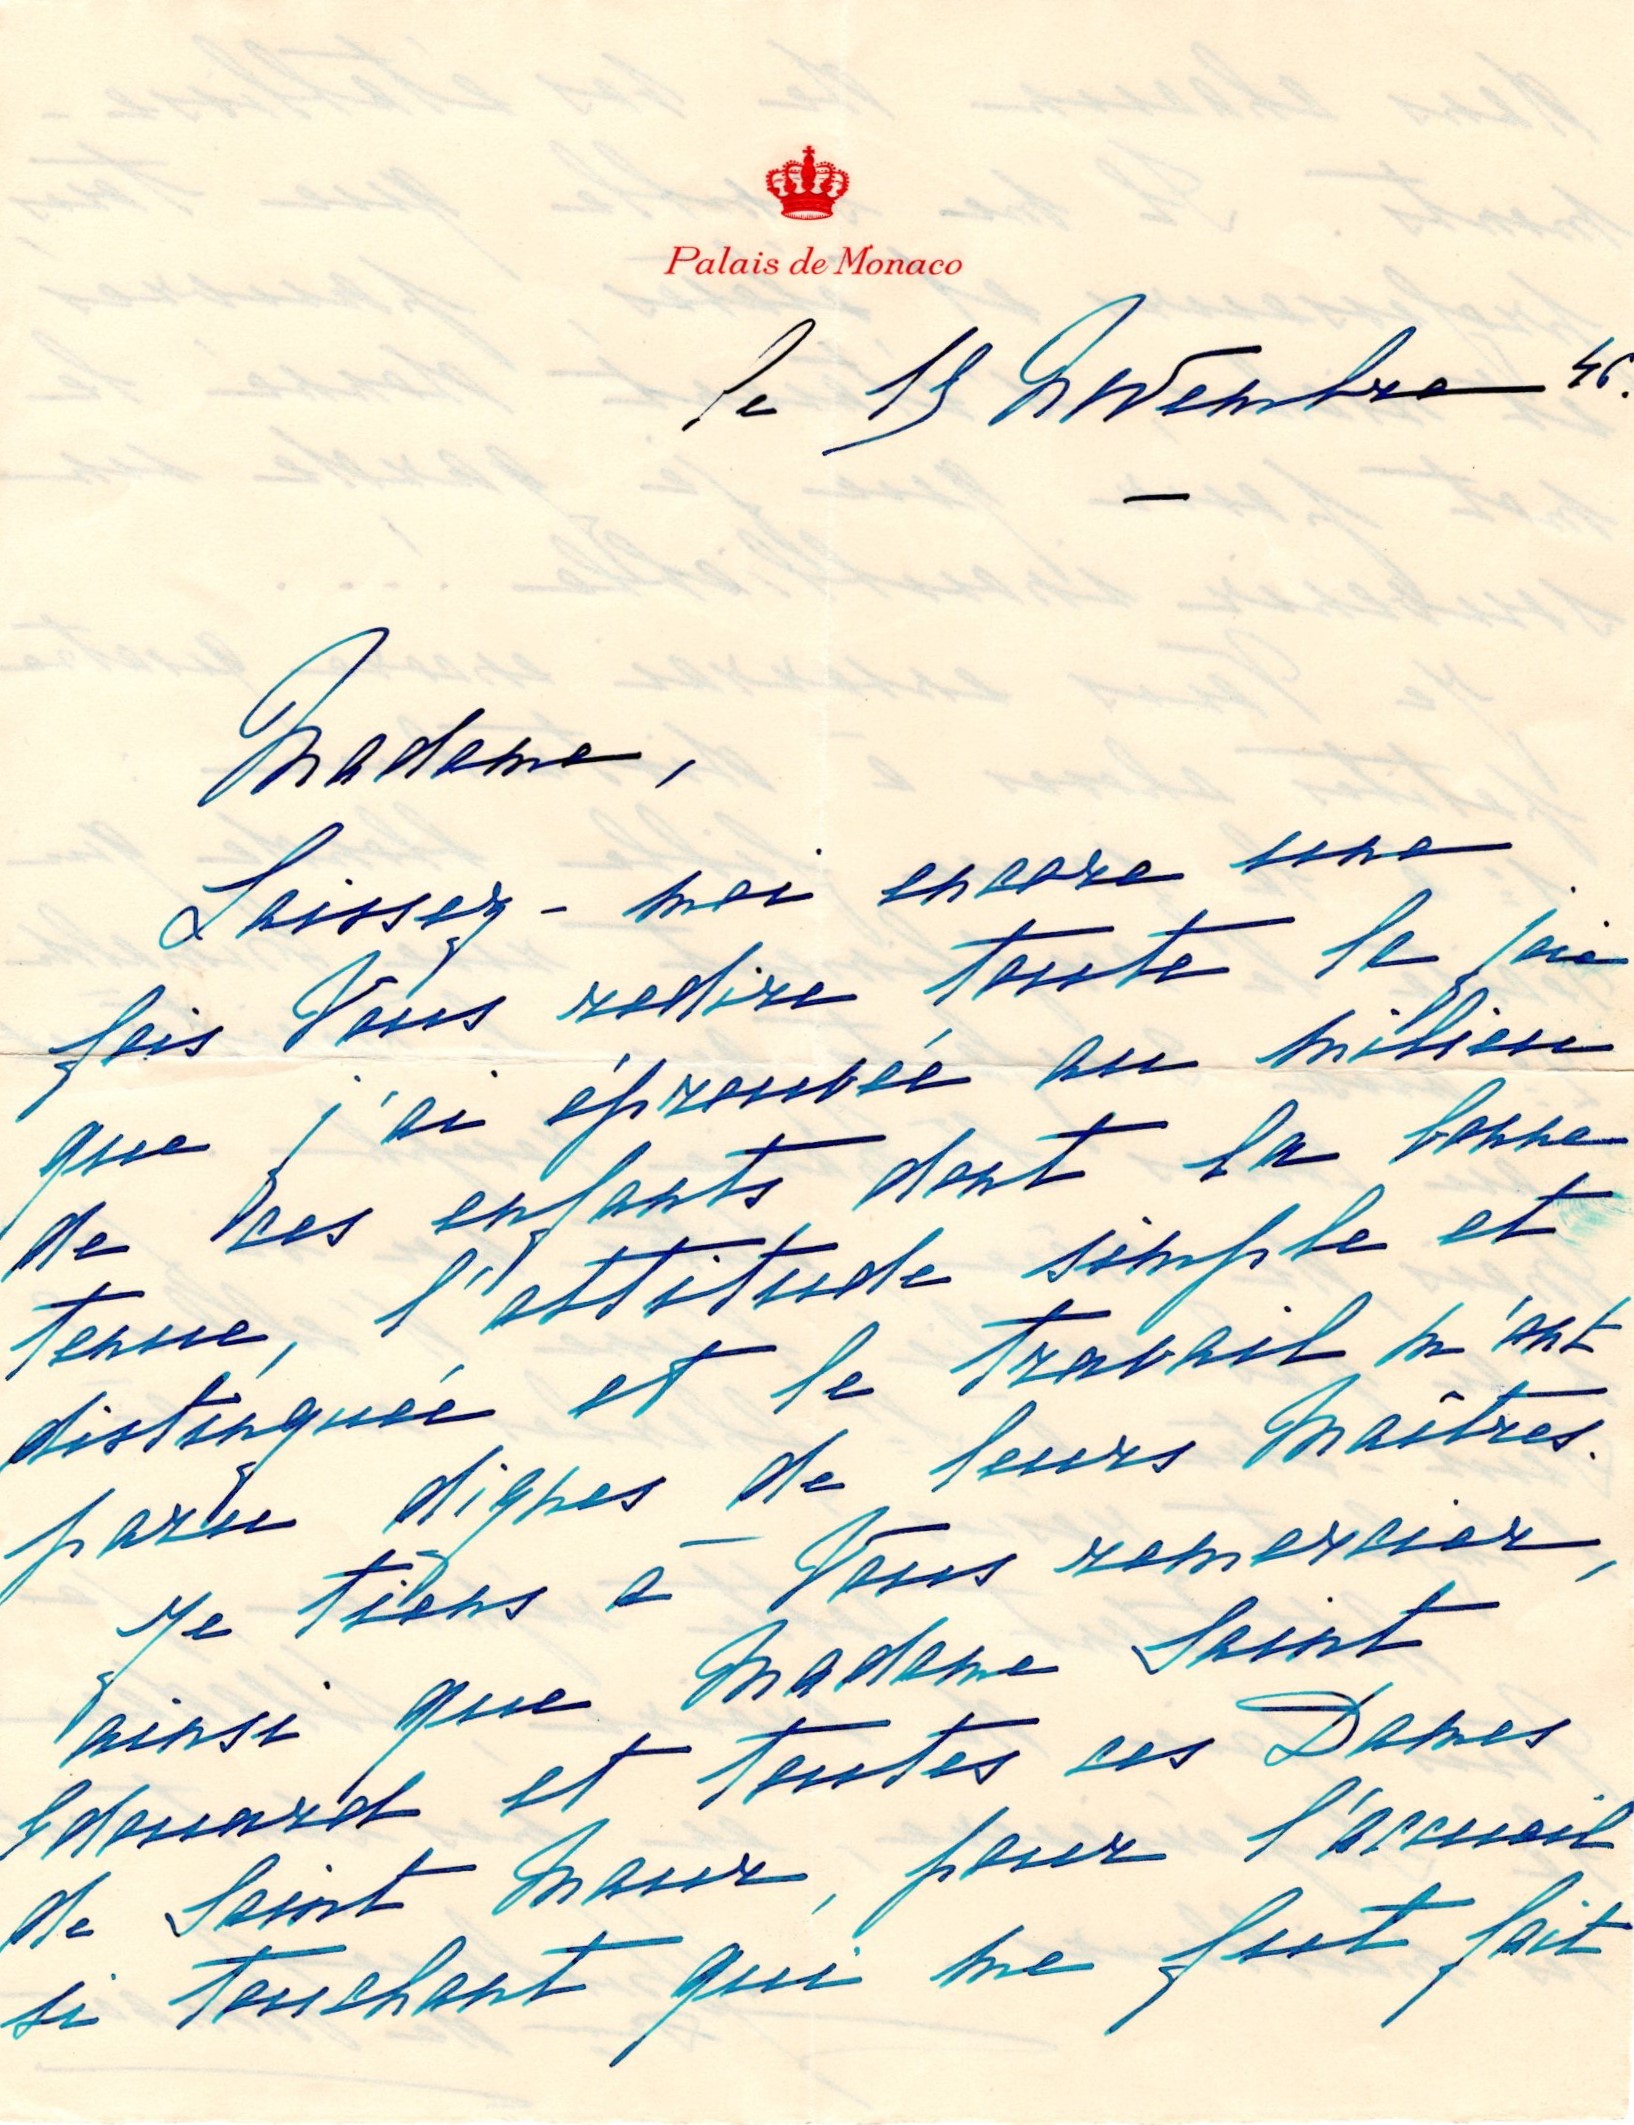 Palais de Monaco
le 19 Novembre 46.
Madame,
Laissez-moi encore une
fois Vous redire toute la joie
que j'ai éprouvée au milieu
de ces enfants dont la bonne
tenue, l'attitude simple et
distinguée et le travail m'ont
paru dignes de leurs Maîtres.
Je tiens à Vous remercier,
ainsi que Madame Saint
Edouard et toutes ces Dames
de Saint Maur, pour l'accueil
si touchant qui me fut fait